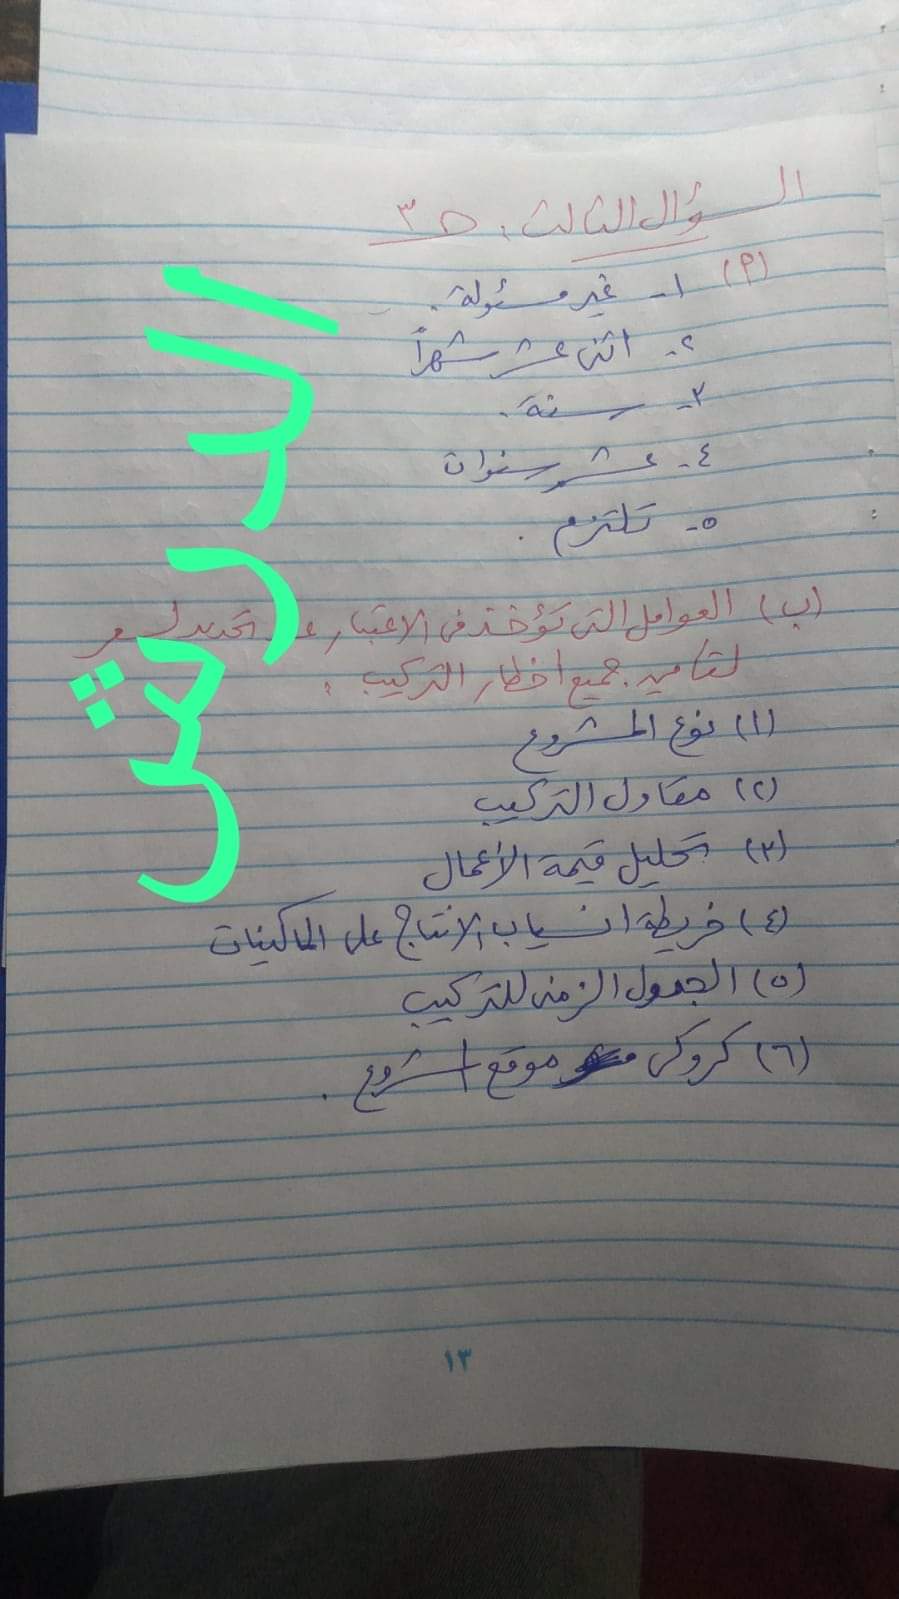 السؤال الثالث: ص ٣
(٩)
١- غير مسئولة.
٢- اثنى عشر شهراً
٣- سنة.
٤- عشر سنوات
٥- تلتزم.
(ب) العوامل التى تؤخذ فى الاعتبار عند تحديد سعر
لتأمين جميع أخطار التركيب:
(١) نوع المشروع
(٢) مقاول التركيب
(٣) تحليل قيمة الأعمال
(٤) خريطة انسياب الانتاج على الماكينات
(٥) الجدول الزمنى للتركيب
(٦) كروكى موقع المشروع.
١٣